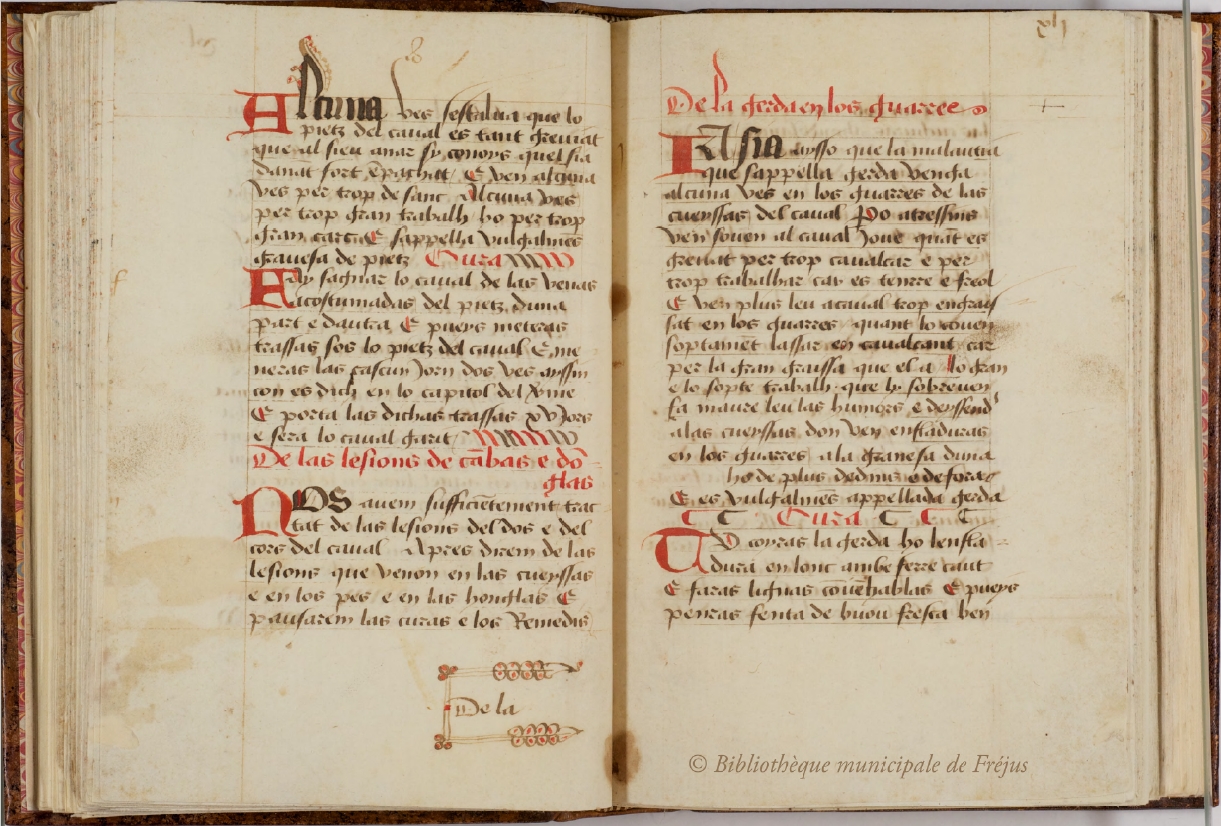 Alcuna ves sestalua que lo
pietz del caual es tant greuiat
que al sieu anar sy conoys quel sia
danat fort e pachat E ven alguna
ves per trop de sanc Alcuna ves
per trop gran trabalh ho per trop
gran carcia E sappella vulgalmēs
grauesa de pietz Cura
Fay sagnar lo caual de las venas
acostumadas del pietz duna
part e dautra E pueys meteras
trassas sos lo pietz del caual E me
neras las cascun jorn dos ves ayssin
con es dich en lo capitol del
E porta las dichas trassas xv Jors
e sera lo caual garit
De las lesions de cābas e dō
glas
NOS auem sufficiētement trac
tat de las lesions del dos e del
cors del caual Apres direm de las
lesions que venon en las cueyssas
e en los pes e en las honglas E
pausarem las curas e los Remedis
De la
De la gerda en los guarres
ayso que la malautia
que sappella gerda venga
alcuna ves en los guarres de las
cueyssas del caual Po atressins
ven souen al caual Joue quāt es
greuiat per trop caualcar e per
trop trabalhar car es tenrre e freol
E ven plus leu a caual trop engrays
sat en los guarres quant lo couen
soptament lassar en caualcant car
per la gran graissa que el a lo gran
e lo sopte trabalh que ly sobreuen
fa maure leu las humors e deyssend
a las cueyssas don ven enfladuras
en los guarres a la granesa duna
ho de plus dedins e deforas
E es vulgalmēs appellada gerda
Cura
TV coyras la gerda ho lenfla
dura en lonc ambe ferre caut
E faras lignas couēhablas E pueys
penras fenta de buou fresca ben
© Bibliothèque municipale de Fréjus